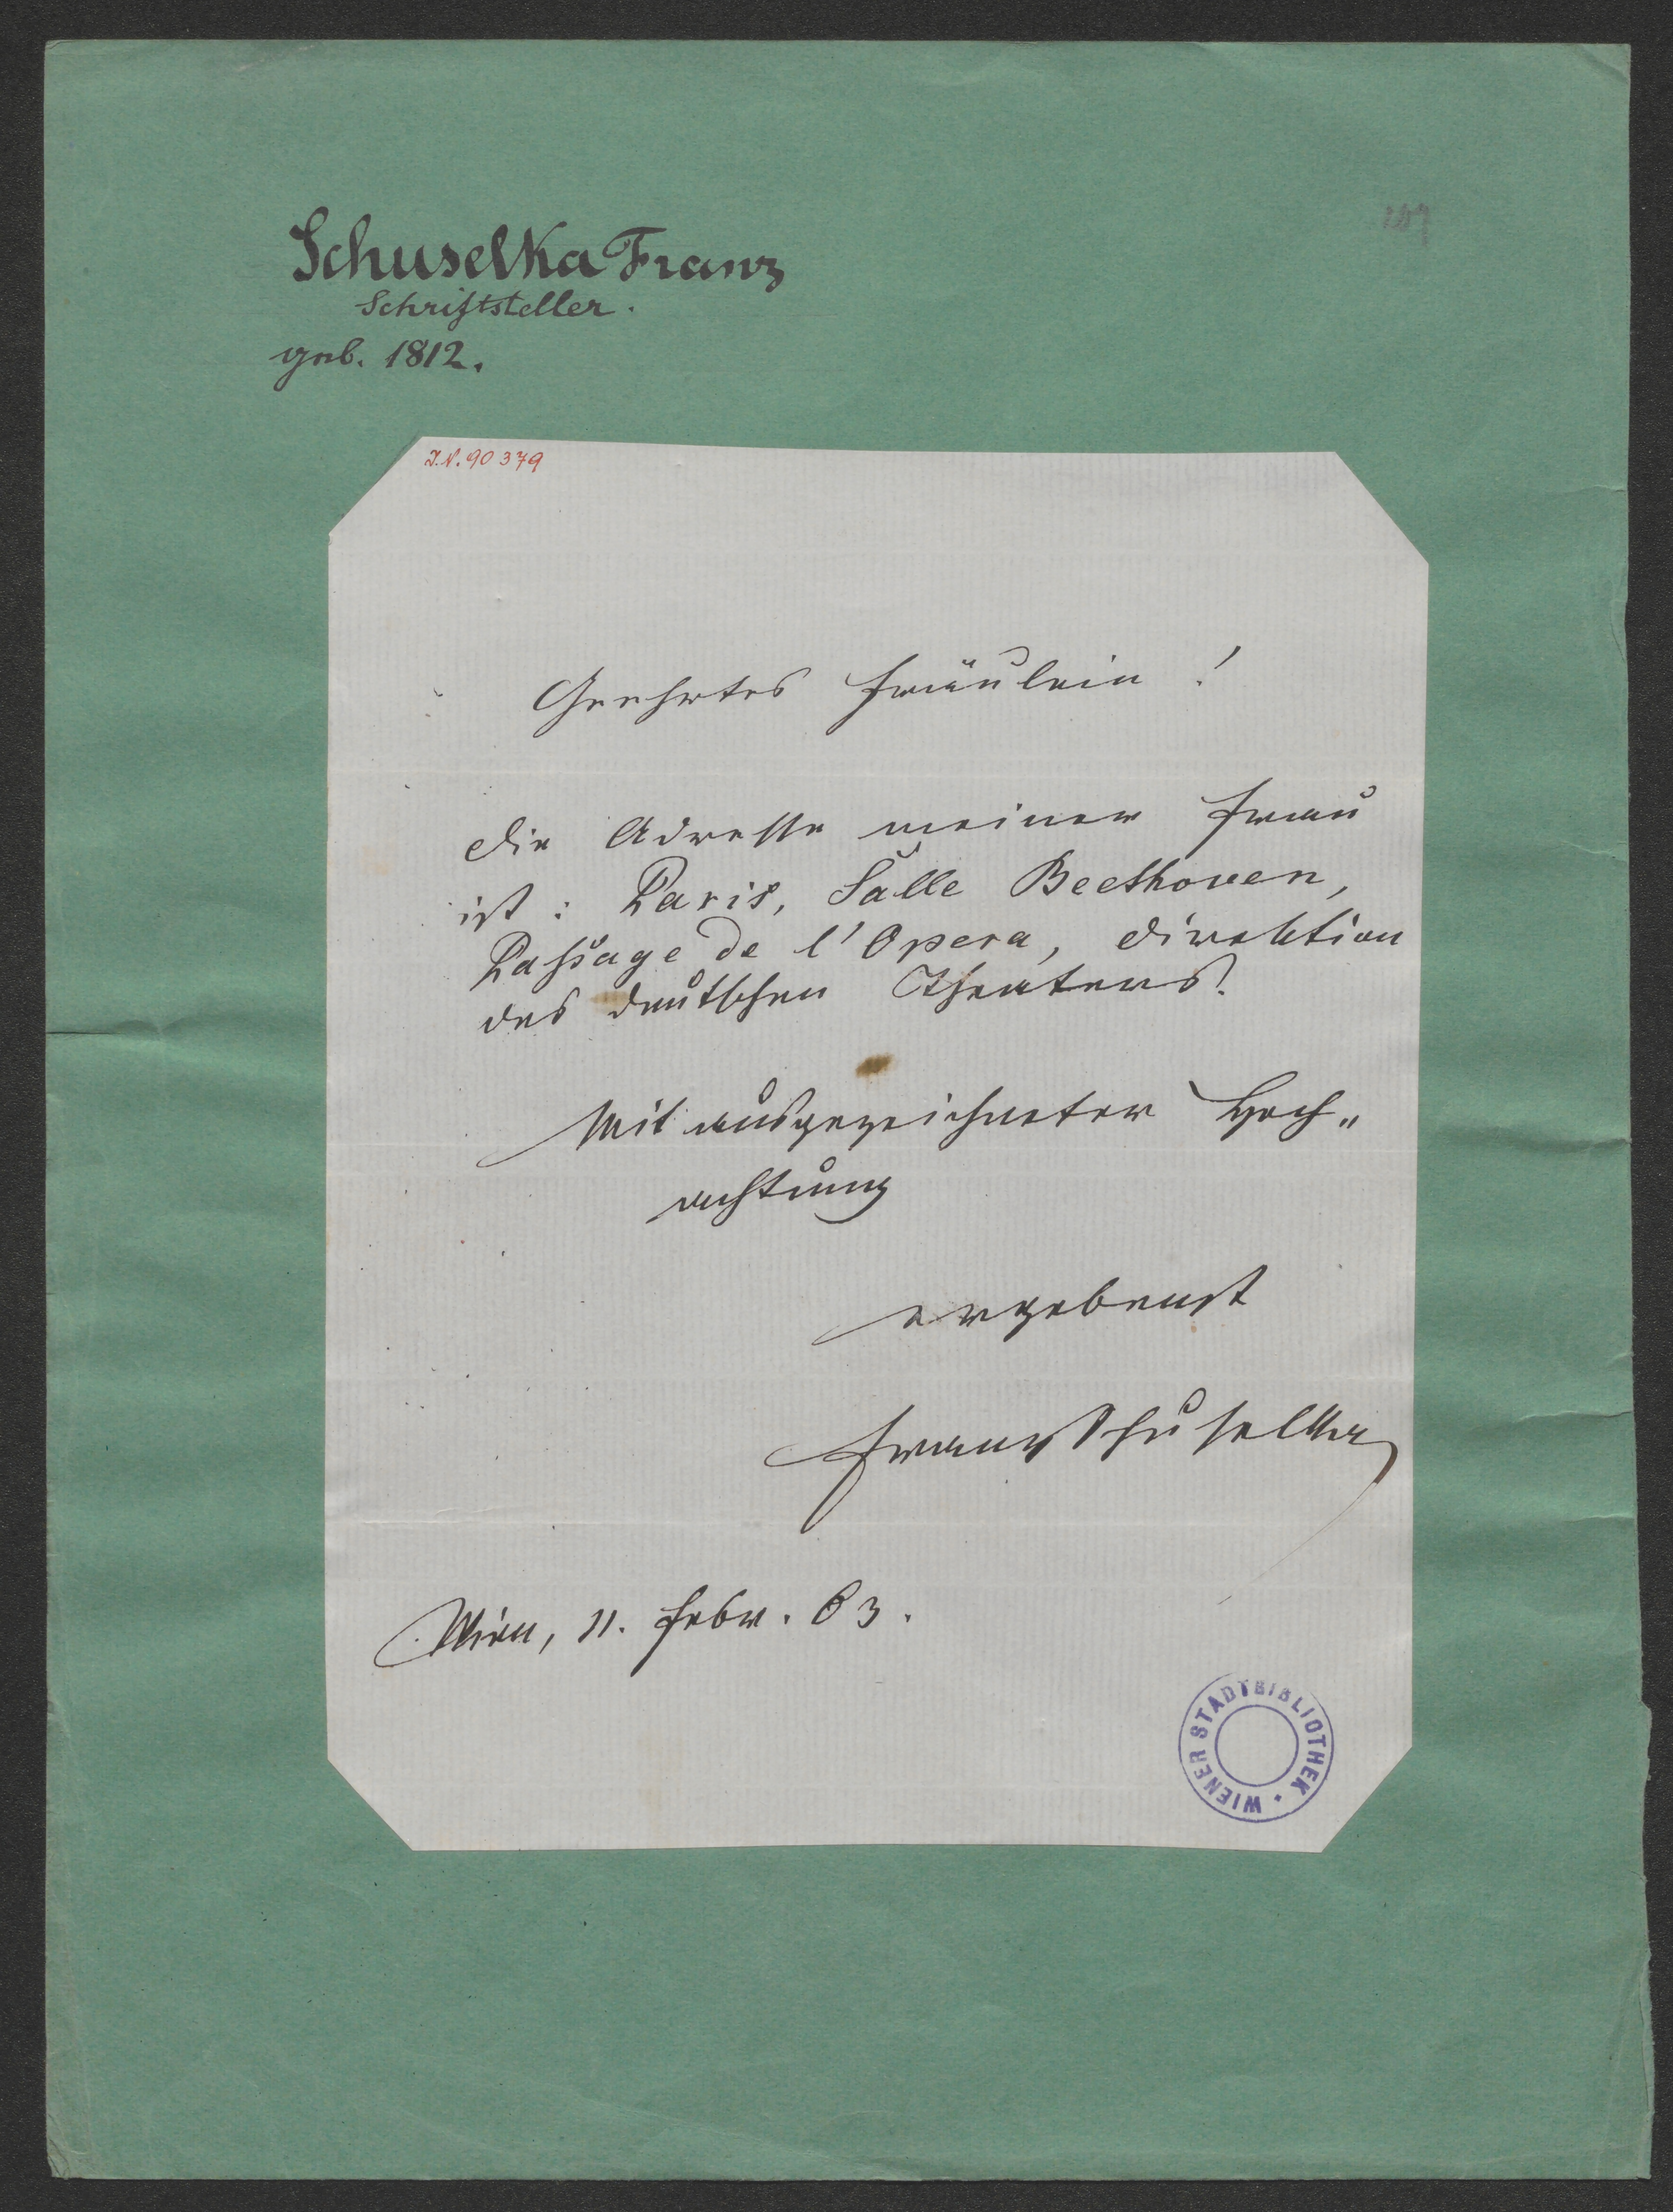 Schuselka Franz
Schriftsteller.
geb. 1812.
I.N. 90379
Geehrtes Fräulein!
Die Adresse meiner Frau
ist: Paris, Salle Beethoven,
Passage de l'Opera, Direktion
des deutschen Theaters.
Mit ausgezeichneter Hoch„
achtung
ergebenst
Franz Schuselka
Wien, 11. Febr. 63.
WIENER STADTBIBLIOTHEK